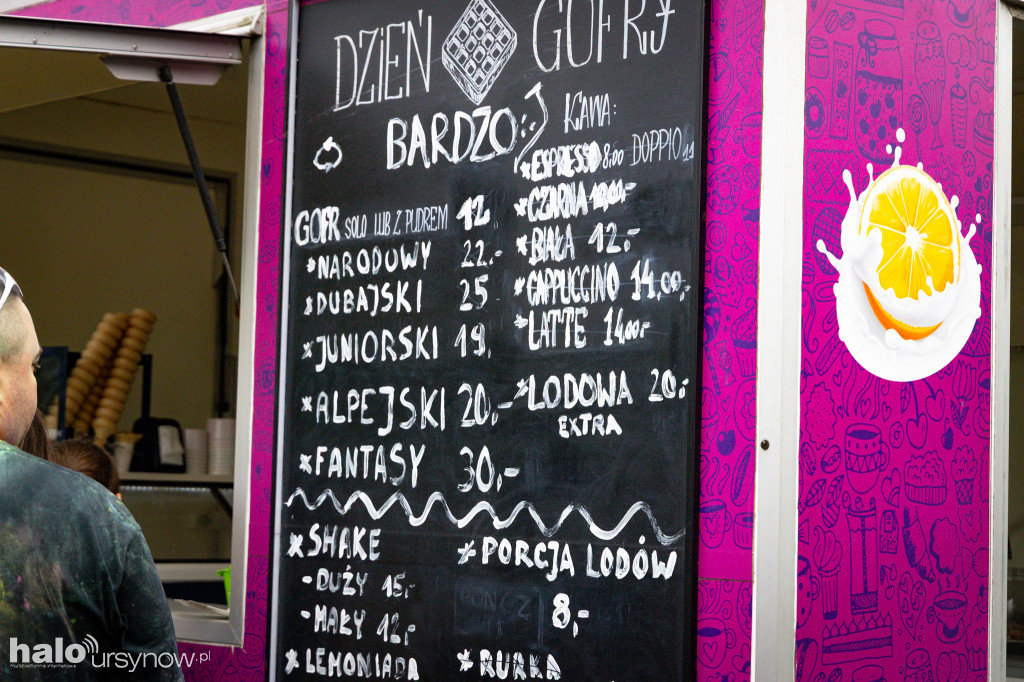 DZIEŃ GOFRY
BARDZO :-)
GOFR SOLO LUB Z PUDREM 12
* NARODOWY 22.-
* DUBAJSKI 25
* JUNIORSKI 19.
* ALPEJSKI 20.-
* FANTASY 30.-
KAWA:
* ESPRESSO 8.00 DOPPIO 11
* CZARNA 10,00.-
* BIAŁA 12.-
* CAPPUCCINO 14,00.-
* LATTE 14,00.-
* LODOWA 20.-
EXTRA
* SHAKE
- DUŻY 15.-
- MAŁY 12.-
* LEMONIADA
* PORCJA LODÓW
8.-
* RURKA
halo ursynow.pl